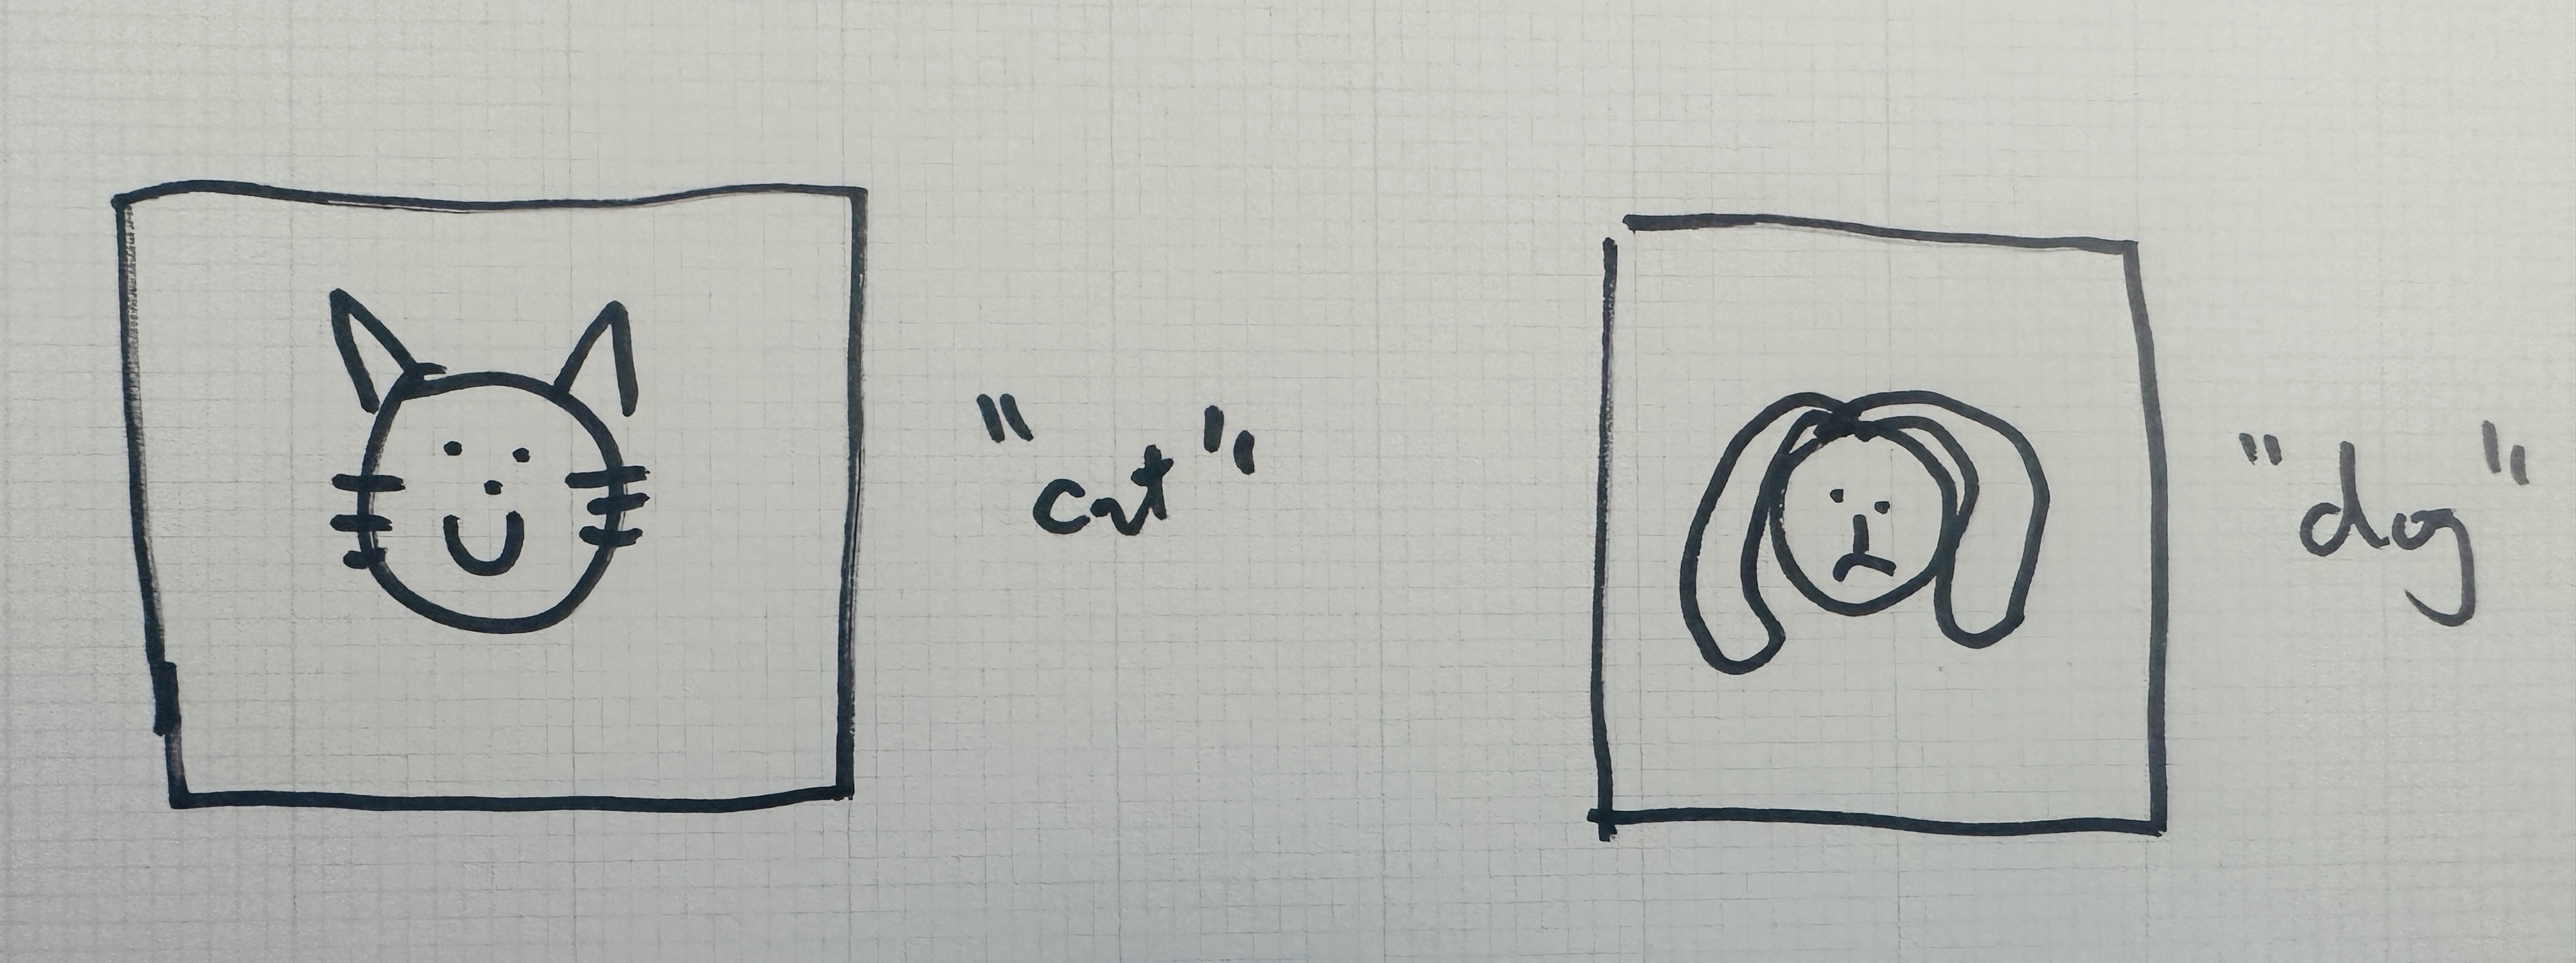 "cat"
"dog"